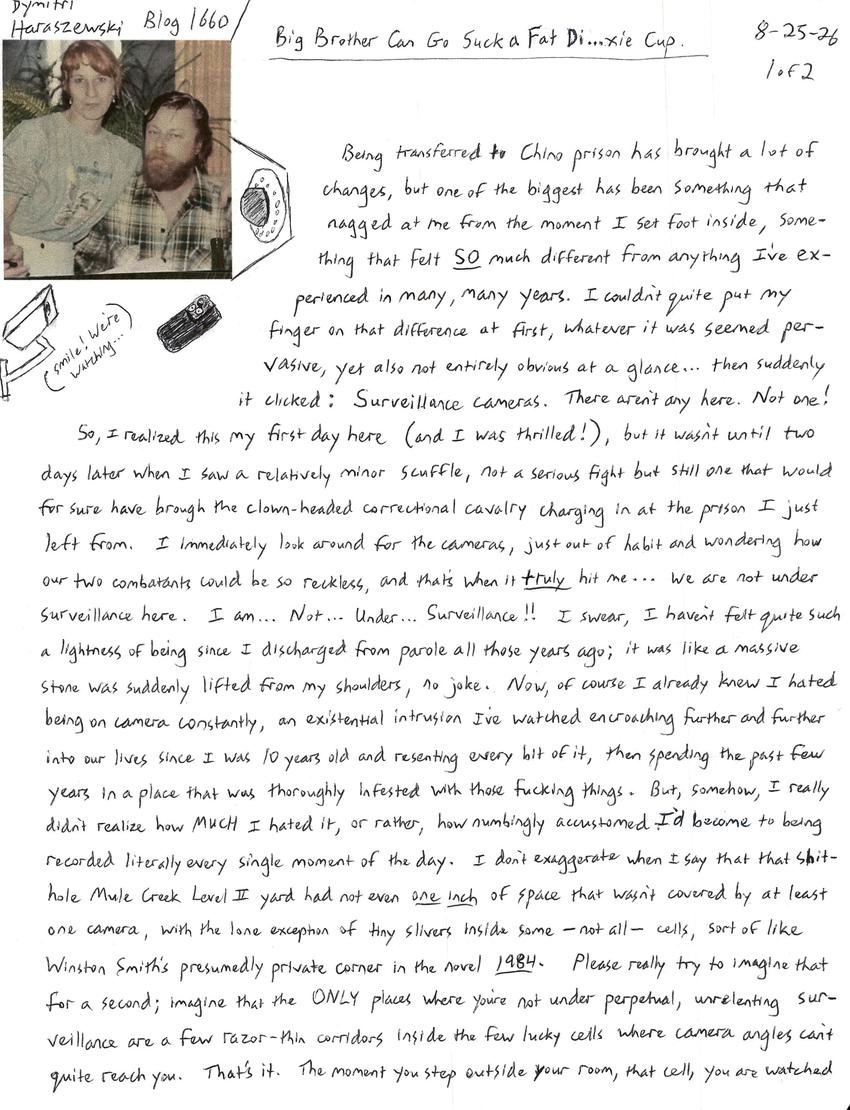 Dymitri
Haraszewski Blog 1660
Big Brother Can Go Suck a Fat Di...xie Cup.
8-25-26
1 of 2
Being transferred to Chino prison has brought a lot of
changes, but one of the biggest has been something that
nagged at me from the moment I set foot inside, some-
thing that felt SO much different from anything I've ex-
perienced in many, many years. I couldn't quite put my
finger on that difference at first, whatever it was seemed per-
vasive, yet also not entirely obvious at a glance... then suddenly
it clicked: Surveillance cameras. There aren't any here. Not one!
(smile! We're
watching...)
So, I realized this my first day here (and I was thrilled!), but it wasn't until two
days later when I saw a relatively minor scuffle, not a serious fight but still one that would
for sure have brough the clown-headed correctional cavalry charging in at the prison I just
left from. I immediately look around for the cameras, just out of habit and wondering how
our two combatants could be so reckless, and that's when it truly hit me... we are not under
surveillance here. I am... Not... Under... Surveillance!! I swear, I haven't felt quite such
a lightness of being since I discharged from parole all those years ago; it was like a massive
stone was suddenly lifted from my shoulders, no joke. Now, of course I already knew I hated
being on camera constantly, an existential intrusion I've watched encroaching further and further
into our lives since I was 10 years old and resenting every bit of it, then spending the past few
years in a place that was thoroughly infested with those fucking things. But, somehow, I really
didn't realize how MUCH I hated it, or rather, how numbingly accustomed I'd become to being
recorded literally every single moment of the day. I don't exaggerate when I say that that shit-
hole Mule Creek Level II yard had not even one inch of space that wasn't covered by at least
one camera, with the lone exception of tiny slivers inside some - not all - cells, sort of like
Winston Smith's presumedly private corner in the novel 1984. Please really try to imagine that
for a second; imagine that the ONLY places where you're not under perpetual, unrelenting sur-
veillance are a few razor-thin corridors inside the few lucky cells where camera angles can't
quite reach you. That's it. The moment you step outside your room, that cell, you are watched